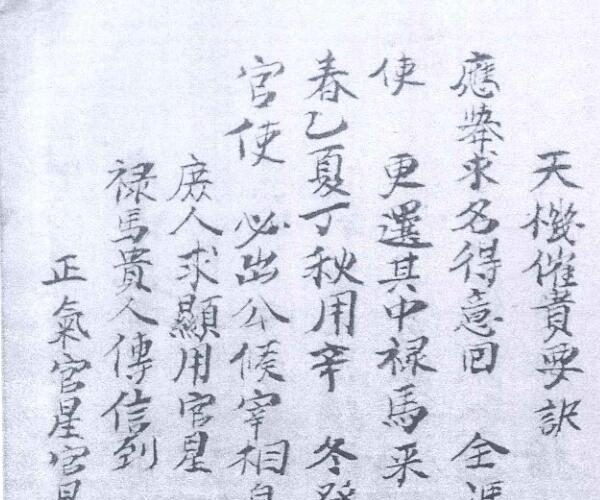 天機催貴要訣
應舉求名得意回 全憑
使 更選其中禄馬来
春乙夏丁秋用辛 冬
官使 必出公候宰相
庶人求顯用官星
禄馬貴人傳信到
正氣官星官星